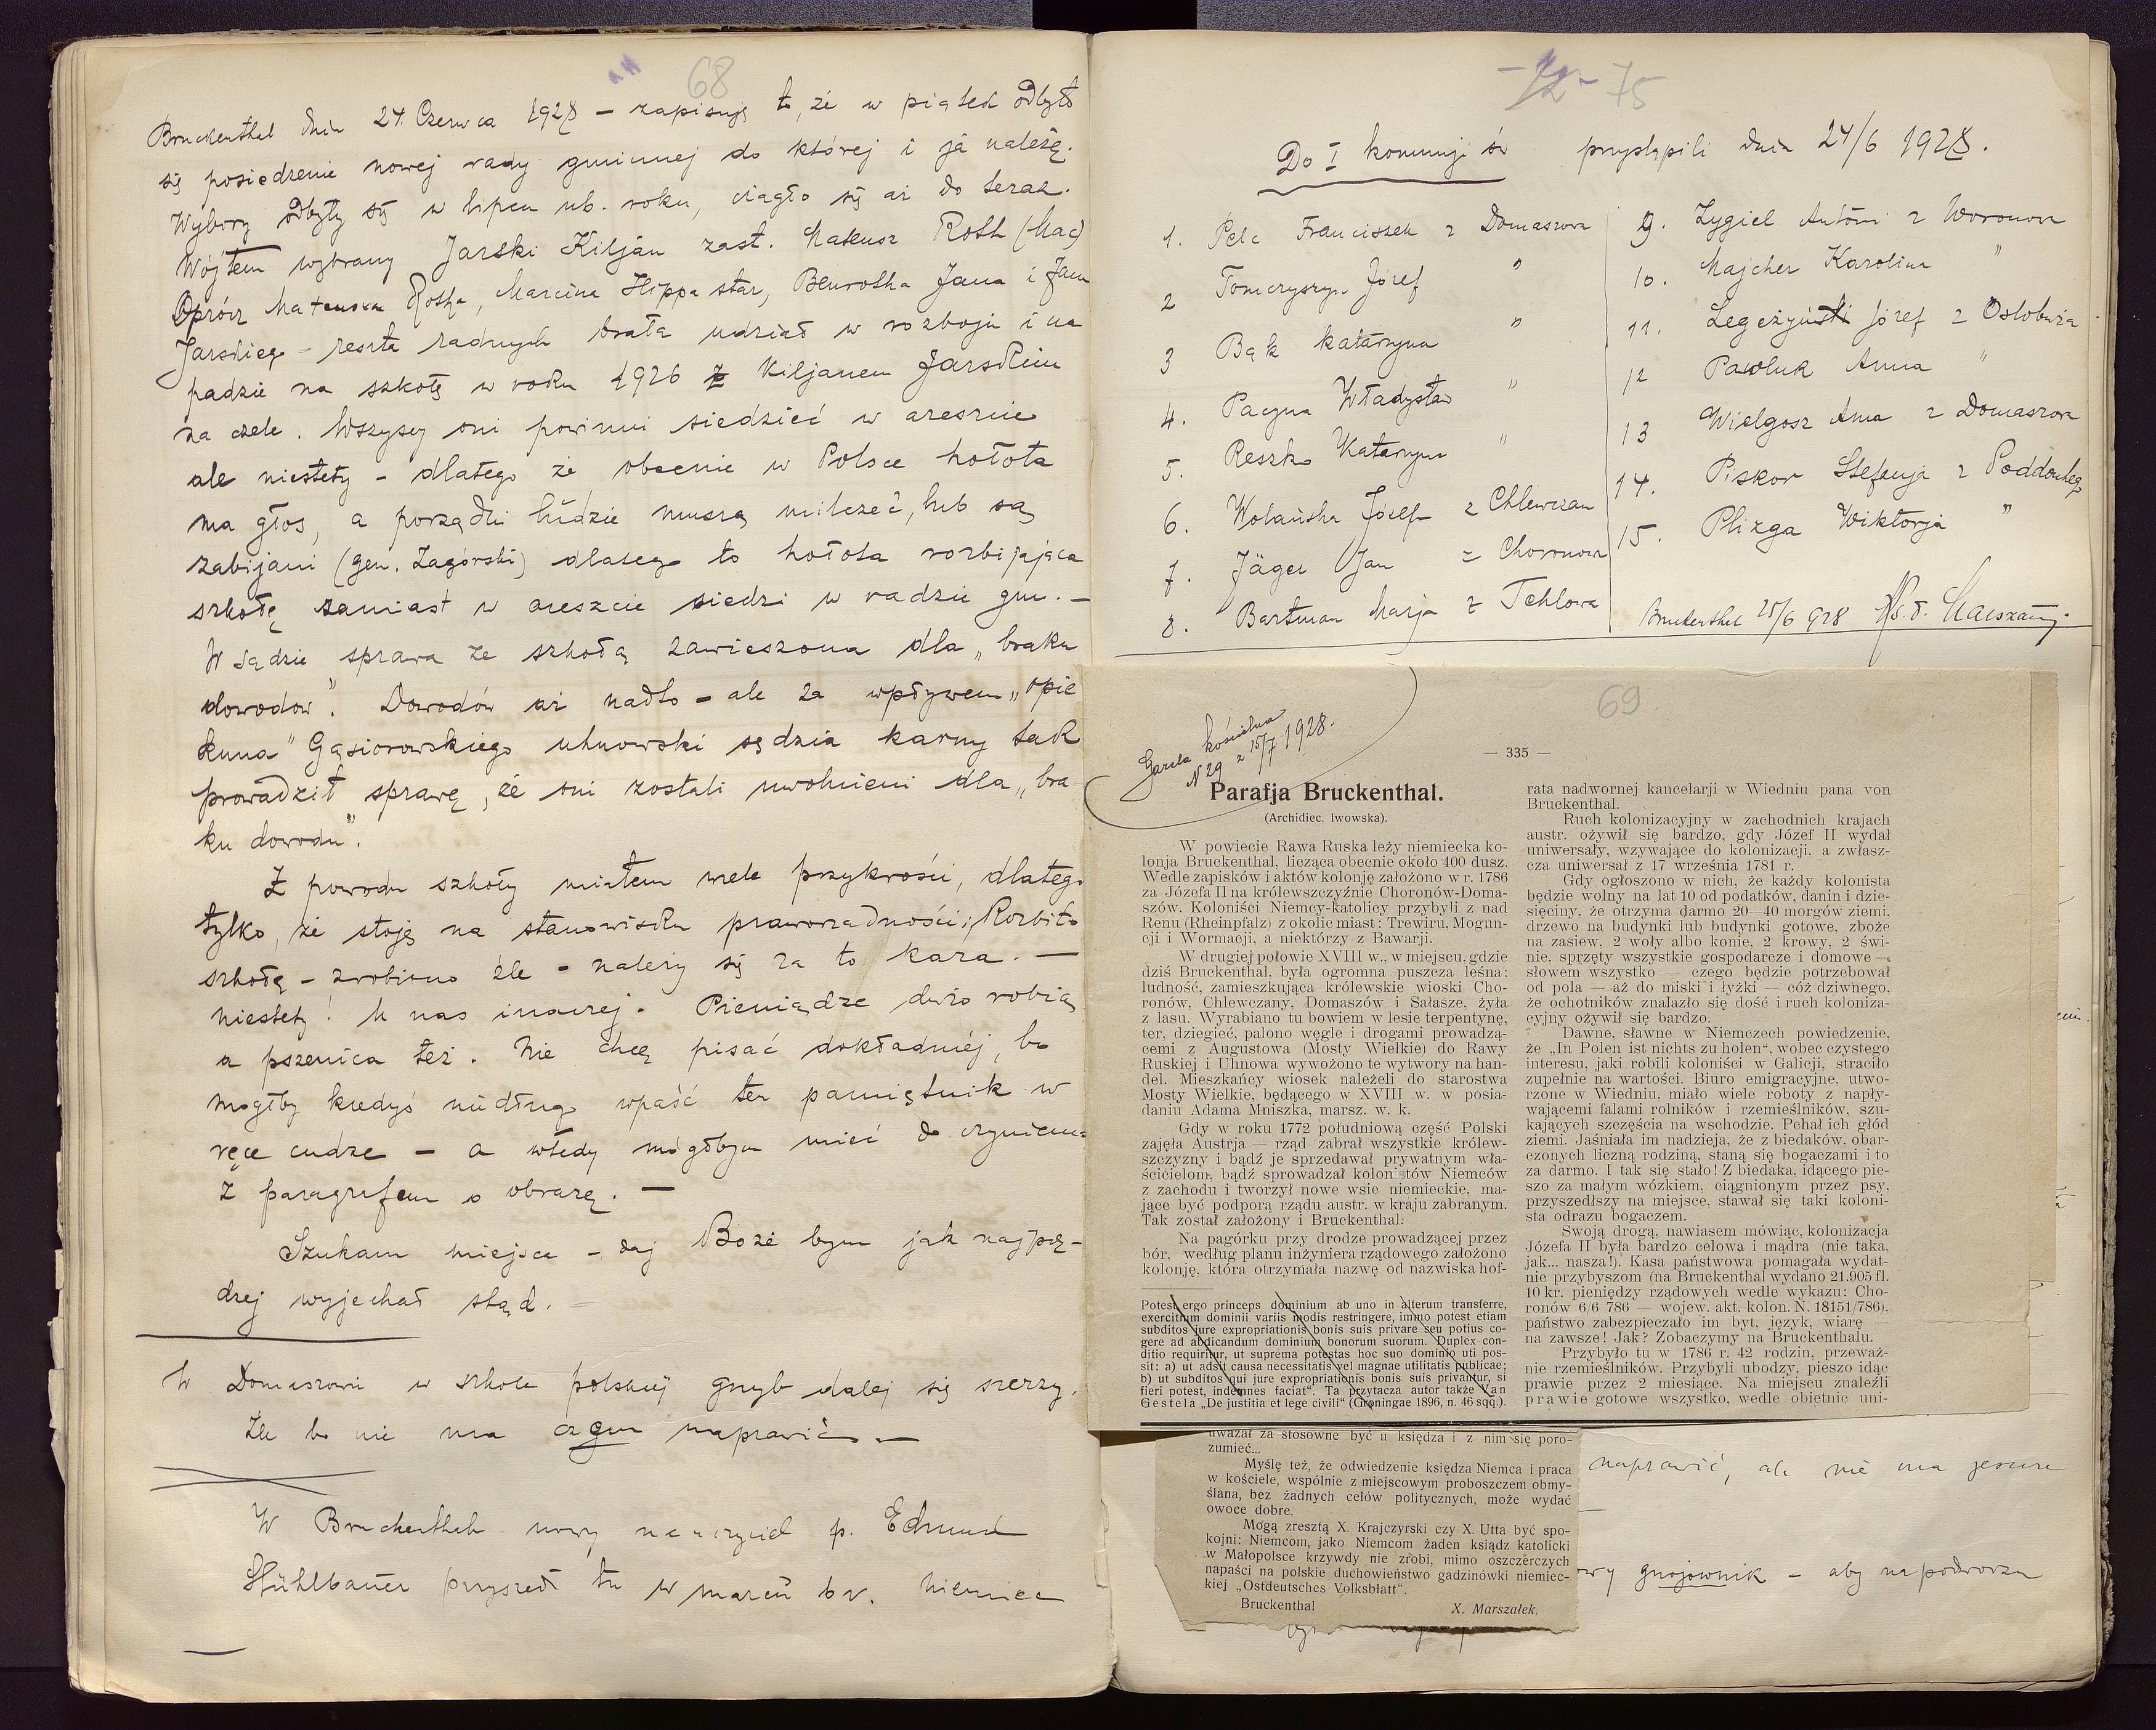 68
Bruckenthal dnia 24. Czerwca 1928 – zapisuję to, że w piątek odbyło
się posiedzenie nowej rady gminnej do której i ja należę.
Wybory odbyły się w lipcu ub. roku, ciągło się aż do teraz.
Wójtem wybrany Jarski Kiljan zast. Mateusz Roth (Mac)
Oprócz Mateusza Rotha, Marcina Hippa star, Benrotha Jana i Jana
Jarskiego – reszta radnych brała udział w rozboju i na
padzie na szkołę w roku 1926 z Kiljanem Jarskim
na czele. Wszyscy oni powinni siedzieć w areszcie
ale niestety – dlatego że obecnie w Polsce hołota
ma głos, a porządni ludzie muszą milczeć, lub są
zabijani (gen. Zagórski) dlatego to hołota rozbijająca
szkołę zamiast w areszcie siedzi w radzie gm. –
W sądzie sprawa ze szkołą zawieszona dla „braku
dowodow". Dowodów aż nadto – ale za wpływem „opie
kuna" Gąsiorowskiego uhnowski sędzia karny tak
prowadził sprawę, że oni zostali uwolnieni dla „bra
ku dowodu".
Z powodu szkoły miałem wiele przykrości, dlatego
tylko, że stoję na stanowisku praworządności; Rozbito
szkołę – zrobiono źle – należy się za to kara. –
niestety! U nas inaczej. Pieniądze dużo robią
a pszenica też. Nie chcę pisać dokładniej, bo
mógłby kiedyś niedługo wpaść ten pamiętnik w
ręce cudze – a wtedy mógłbym mieć do czynienia
z paragrafem o obrazę. –
Szukam miejsca – daj Boże bym jak najprę-
dzej wyjechał stąd. –
W Domaszowie w szkole polskiej grzyb dalej się szerzy.
Źle bo nie ma czem naprawić. –
W Bruckenthalu nowy nauczyciel p. Edmund
Hühlbauer przyszedł tu w marcu b r. Niemiec
– 72 – 75
Do I komunji św przystąpili dnia 24/6 1928.
1. Pelc Franciszek z Domaszowa
2 Tomczyszyn Józef "
3 Bąk Katarzyna "
4. Pacyna Władysław "
5. Reszko Katarzyna "
6. Wolańska Józefa z Chlewczan
7. Jäger Jan z Choronowa
8. Bartman Marja z Tehlowa
9. Żygiel Antoni z Woronowa
10. Majcher Karolina "
11. Legeżyński Józef z Ostobuża
12 Pawluk Anna "
13 Wielgosz Anna z Domaszowa
14. Piskor Stefanja z Poddouhego
15. Plizga Wiktorja "
Bruckenthal 25/6 928 Ks. J. Marszałek
69
Gazeta kościelna
N 29 z 15/7 1928.
— 335 —
Parafja Bruckenthal.
(Archidiec. lwowska).
W powiecie Rawa Ruska leży niemiecka ko-
lonja Bruckenthal, licząca obecnie około 400 dusz.
Wedle zapisków i aktów kolonję założono w r. 1786
za Józefa II na królewszczyźnie Choronów-Doma-
szów. Koloniści Niemcy-katolicy przybyli z nad
Renu (Rheinpfalz) z okolic miast: Trewiru, Mogun-
cji i Wormacji, a niektórzy z Bawarji.
W drugiej połowie XVIII w., w miejscu, gdzie
dziś Bruckenthal, była ogromna puszcza leśna:
ludność, zamieszkująca królewskie wioski Cho-
ronów, Chlewczany, Domaszów i Sałasze, żyła
z lasu. Wyrabiano tu bowiem w lesie terpentynę,
ter, dziegieć, palono węgle i drogami prowadzą-
cemi z Augustowa (Mosty Wielkie) do Rawy
Ruskiej i Uhnowa wywożono te wytwory na han-
del. Mieszkańcy wiosek należeli do starostwa
Mosty Wielkie, będącego w XVIII w. w posia-
daniu Adama Mniszka, marsz. w. k.
Gdy w roku 1772 południową część Polski
zajęła Austrja — rząd zabrał wszystkie królew-
szczyzny i bądź je sprzedawał prywatnym wła-
ścicielom, bądź sprowadzał kolonistów Niemców
z zachodu i tworzył nowe wsie niemieckie, ma-
jące być podporą rządu austr. w kraju zabranym.
Tak został założony i Bruckenthal.
Na pagórku przy drodze prowadzącej przez
bór, według planu inżyniera rządowego założono
kolonję, która otrzymała nazwę od nazwiska hof-
Potest ergo princeps dominium ab uno in alterum transferre,
exercitium dominii variis modis restringere, immo potest etiam
subditos jure expropriationis bonis suis privare seu potius co-
gere ad abdicandum dominium bonorum suorum. Duplex con-
ditio requiritur, ut suprema potestas hoc suo dominio uti pos-
sit: a) ut adsit causa necessitatis vel magnae utilitatis publicae;
b) ut subditos qui jure expropriationis bonis suis privantur, si
fieri potest, indemnes faciat". Ta przytacza autor także Van
Gestela „De justitia et lege civili" (Groningae 1896, n. 46 sqq.).
rata nadwornej kancelarji w Wiedniu pana von
Bruckenthal.
Ruch kolonizacyjny w zachodnich krajach
austr. ożywił się bardzo, gdy Józef II wydał
uniwersały, wzywające do kolonizacji, a zwłasz-
cza uniwersał z 17 września 1781 r.
Gdy ogłoszono w nich, że każdy kolonista
będzie wolny na lat 10 od podatków, danin i dzie-
sięciny, że otrzyma darmo 20—40 morgów ziemi,
drzewo na budynki lub budynki gotowe, zboże
na zasiew, 2 woły albo konie, 2 krowy, 2 świ-
nie, sprzęty wszystkie gospodarcze i domowe —
słowem wszystko — czego będzie potrzebował
od pola — aż do miski i łyżki — cóż dziwnego,
że ochotników znalazło się dość i ruch koloniza-
cyjny ożywił się bardzo.
Dawne, sławne w Niemczech powiedzenie,
że „In Polen ist nichts zu holen", wobec czystego
interesu, jaki robili koloniści w Galicji, straciło
zupełnie na wartości. Biuro emigracyjne, utwo-
rzone w Wiedniu, miało wiele roboty z napły-
wającemi falami rolników i rzemieślników, szu-
kających szczęścia na wschodzie. Pchał ich głód
ziemi. Jaśniała im nadzieja, że z biedaków, obar-
czonych liczną rodziną, staną się bogaczami i to
za darmo. I tak się stało! Z biedaka, idącego pie-
szo za małym wózkiem, ciągnionym przez psy,
przyszedłszy na miejsce, stawał się taki koloni-
sta odrazu bogaczem.
Swoją drogą, nawiasem mówiąc, kolonizacja
Józefa II była bardzo celowa i mądra (nie taka,
jak... nasza!). Kasa państwowa pomagała wydat-
nie przybyszom (na Bruckenthal wydano 21.905 fl.
10 kr. pieniędzy rządowych wedle wykazu: Cho-
ronów 6/6 786 — wojew. akt. kolon. N. 18151/786),
państwo zabezpieczało im byt, język, wiarę —
na zawsze! Jak? Zobaczymy na Bruckenthalu.
Przybyło tu w 1786 r. 42 rodzin, przeważ-
nie rzemieślników. Przybyli ubodzy, pieszo idąc
prawie przez 2 miesiące. Na miejscu znaleźli
prawie gotowe wszystko, wedle obietnic uni-
uważał za stosowne być u księdza i z nim się poro-
zumieć...
Myślę też, że odwiedzenie księdza Niemca i praca
w kościele, wspólnie z miejscowym proboszczem obmy-
ślana, bez żadnych celów politycznych, może wydać
owoce dobre.
Mogą zresztą X. Krajczyrski czy X. Utta być spo-
kojni: Niemcom, jako Niemcom żaden ksiądz katolicki
w Małopolsce krzywdy nie zrobi, mimo oszczerczych
napaści na polskie duchowieństwo gadzinówki niemiec-
kiej „Ostdeutsches Volksblatt".
Bruckenthal X. Marszałek.
naprawić, ale nie ma jeszcze
gnojownik – aby na podwórzu